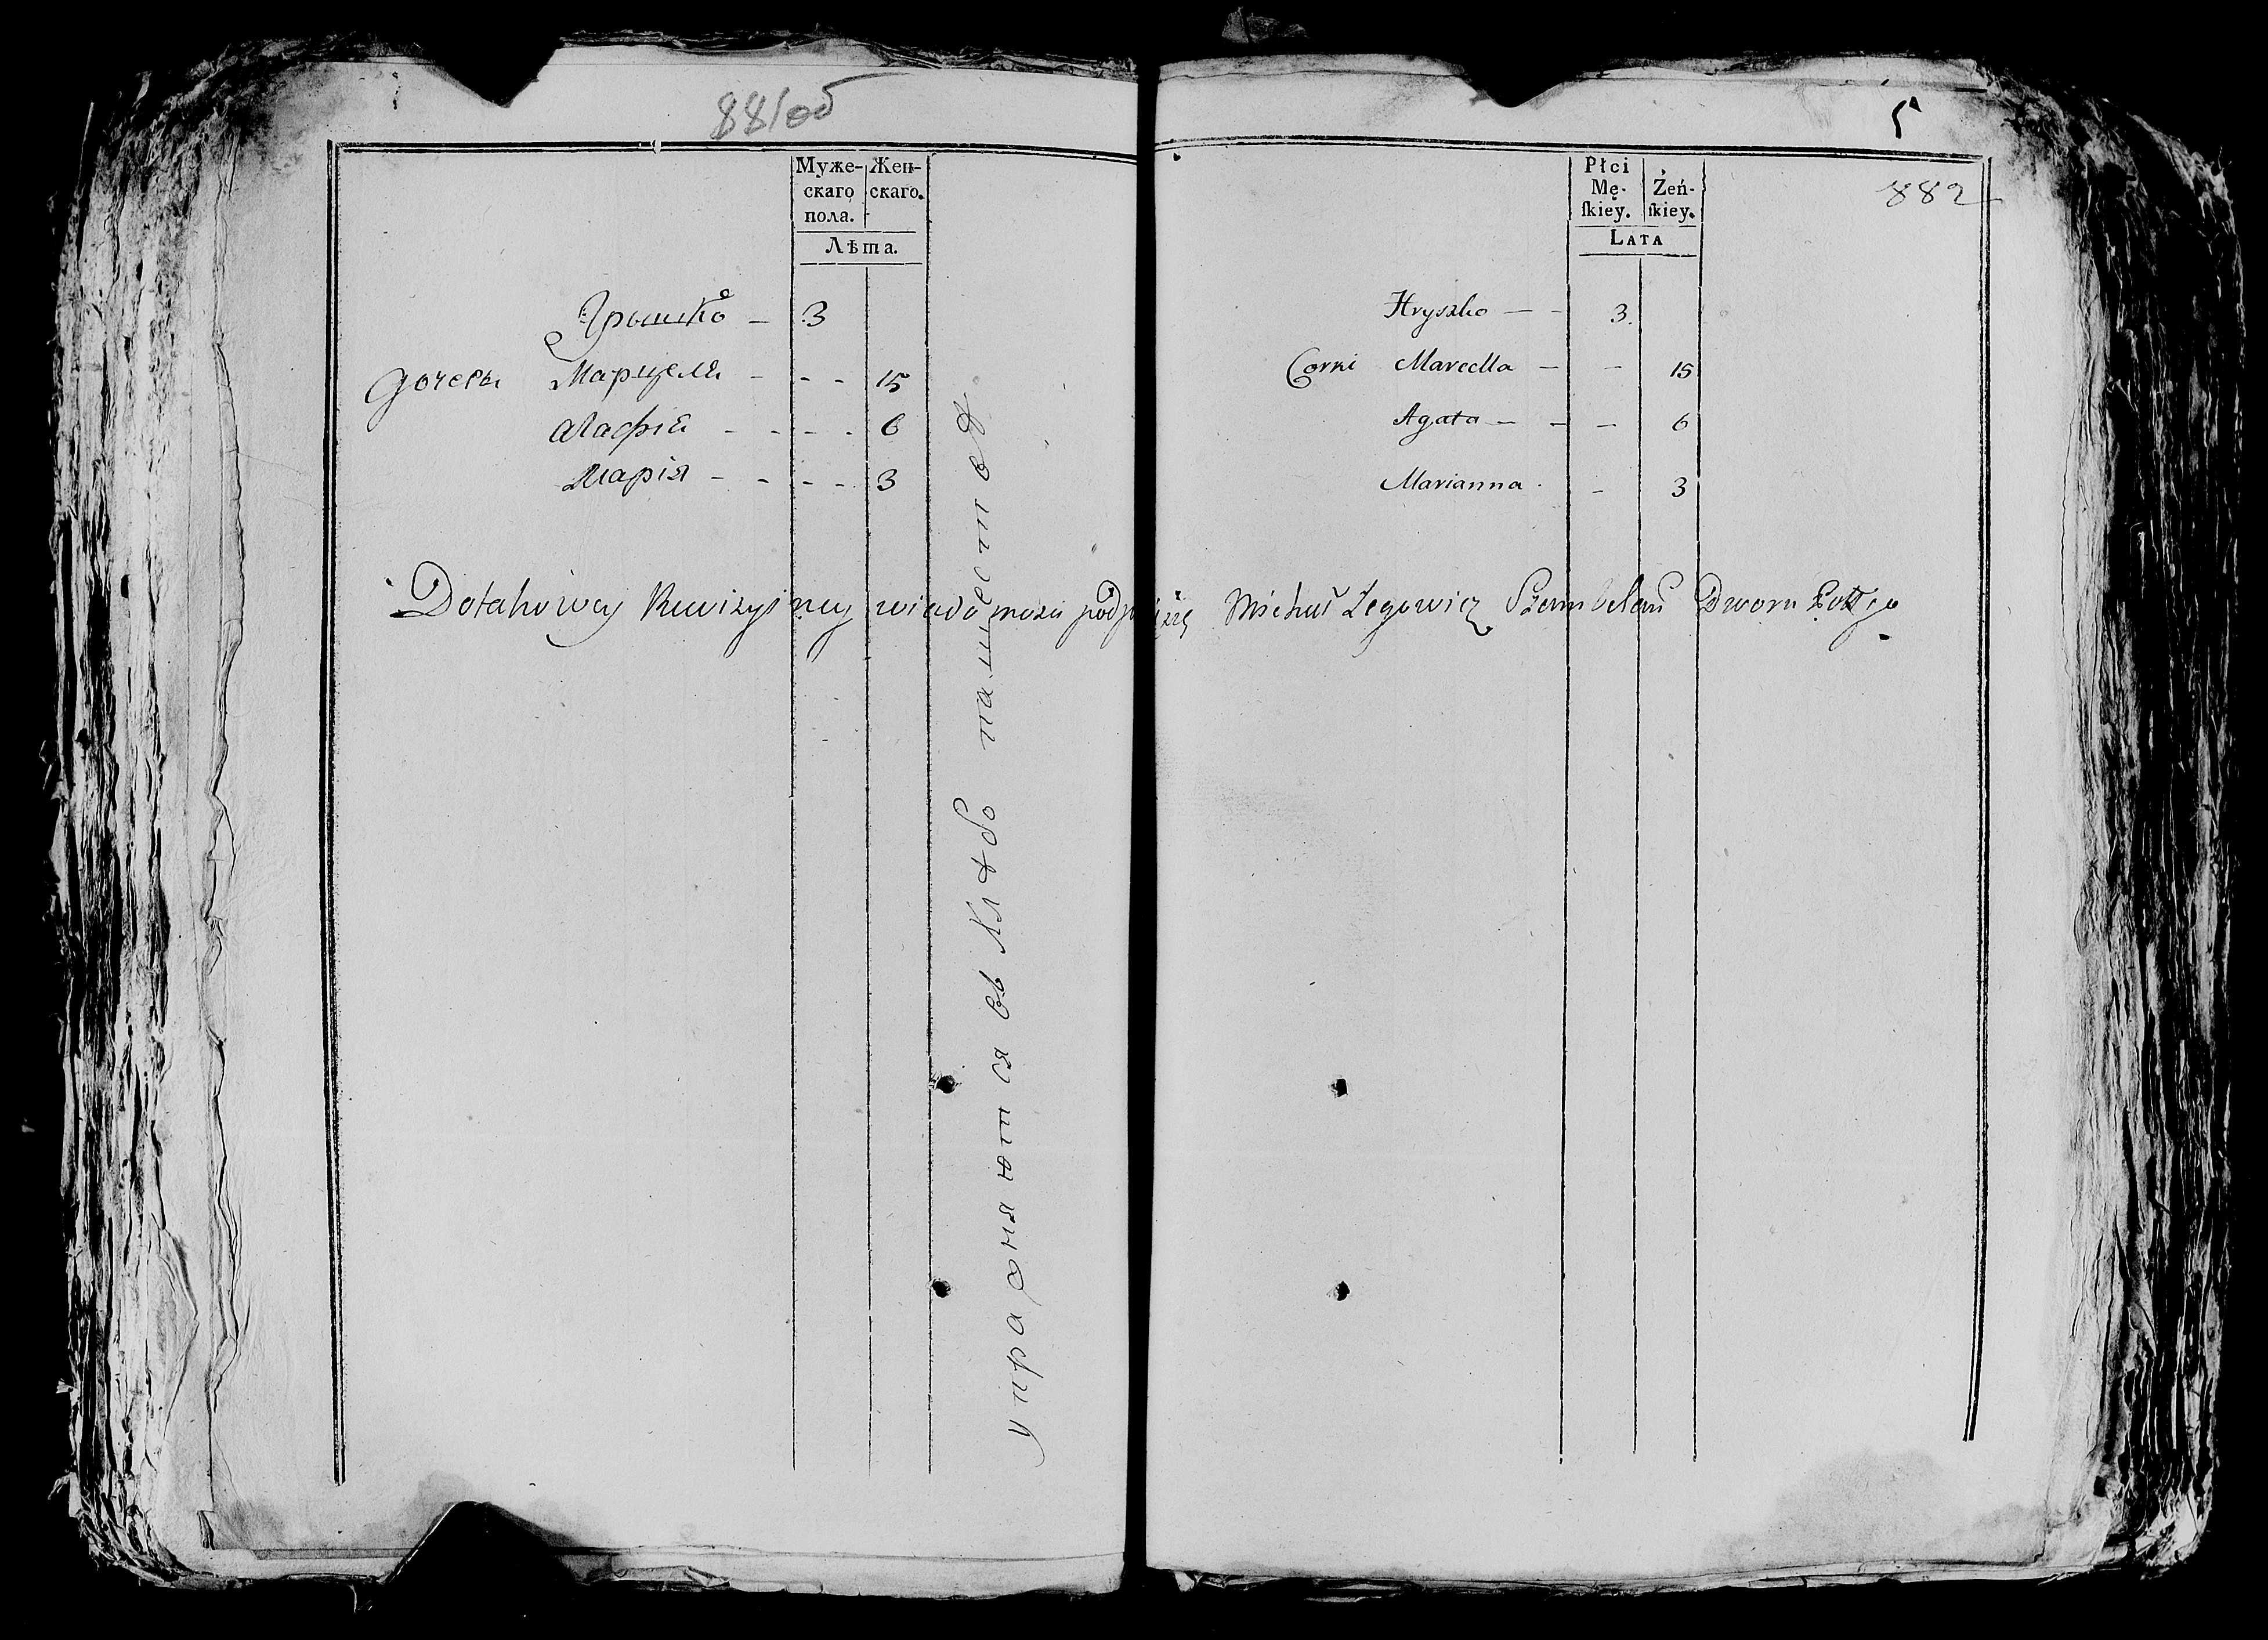 881об
Муже-
скаго
пола.
Жен-
скаго.
Лѣта.
Грышко — 3
дочеры Марцеля - - - 15
Агафія - - - - 6
Марія - - - - 3
упражняются въ хлѣбопашествѣ
5
882
Płci
Mę-
ſkiey.
Żeń-
ſkiey.
LATA
Hryszko — - 3.
Corki Marcella — - 15
Agata — - - 6
Marianna - - 3
Dotakowey Rewizyiney wiadomosci podpisuię Michał Zegowicz Szambelan Dworu